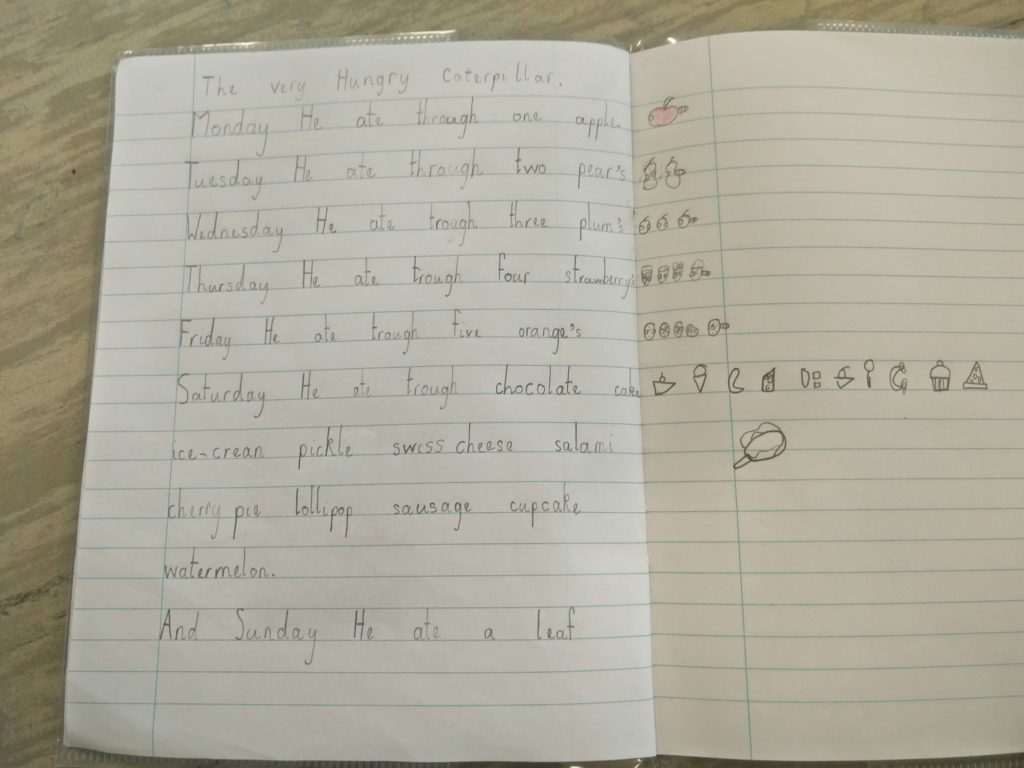 The very Hungry Caterpillar.
Monday He ate through one apple.
Tuesday He ate through two pear's
Wednesday He ate trough three plum's
Thursday He ate trough four strawberry's
Friday He ate trough five orange's
Saturday He ate trough chocolate cake
ice-crean pickle swiss cheese salami
cherry pie lollipop sausage cupcake
watermelon.
And Sunday He ate a leaf